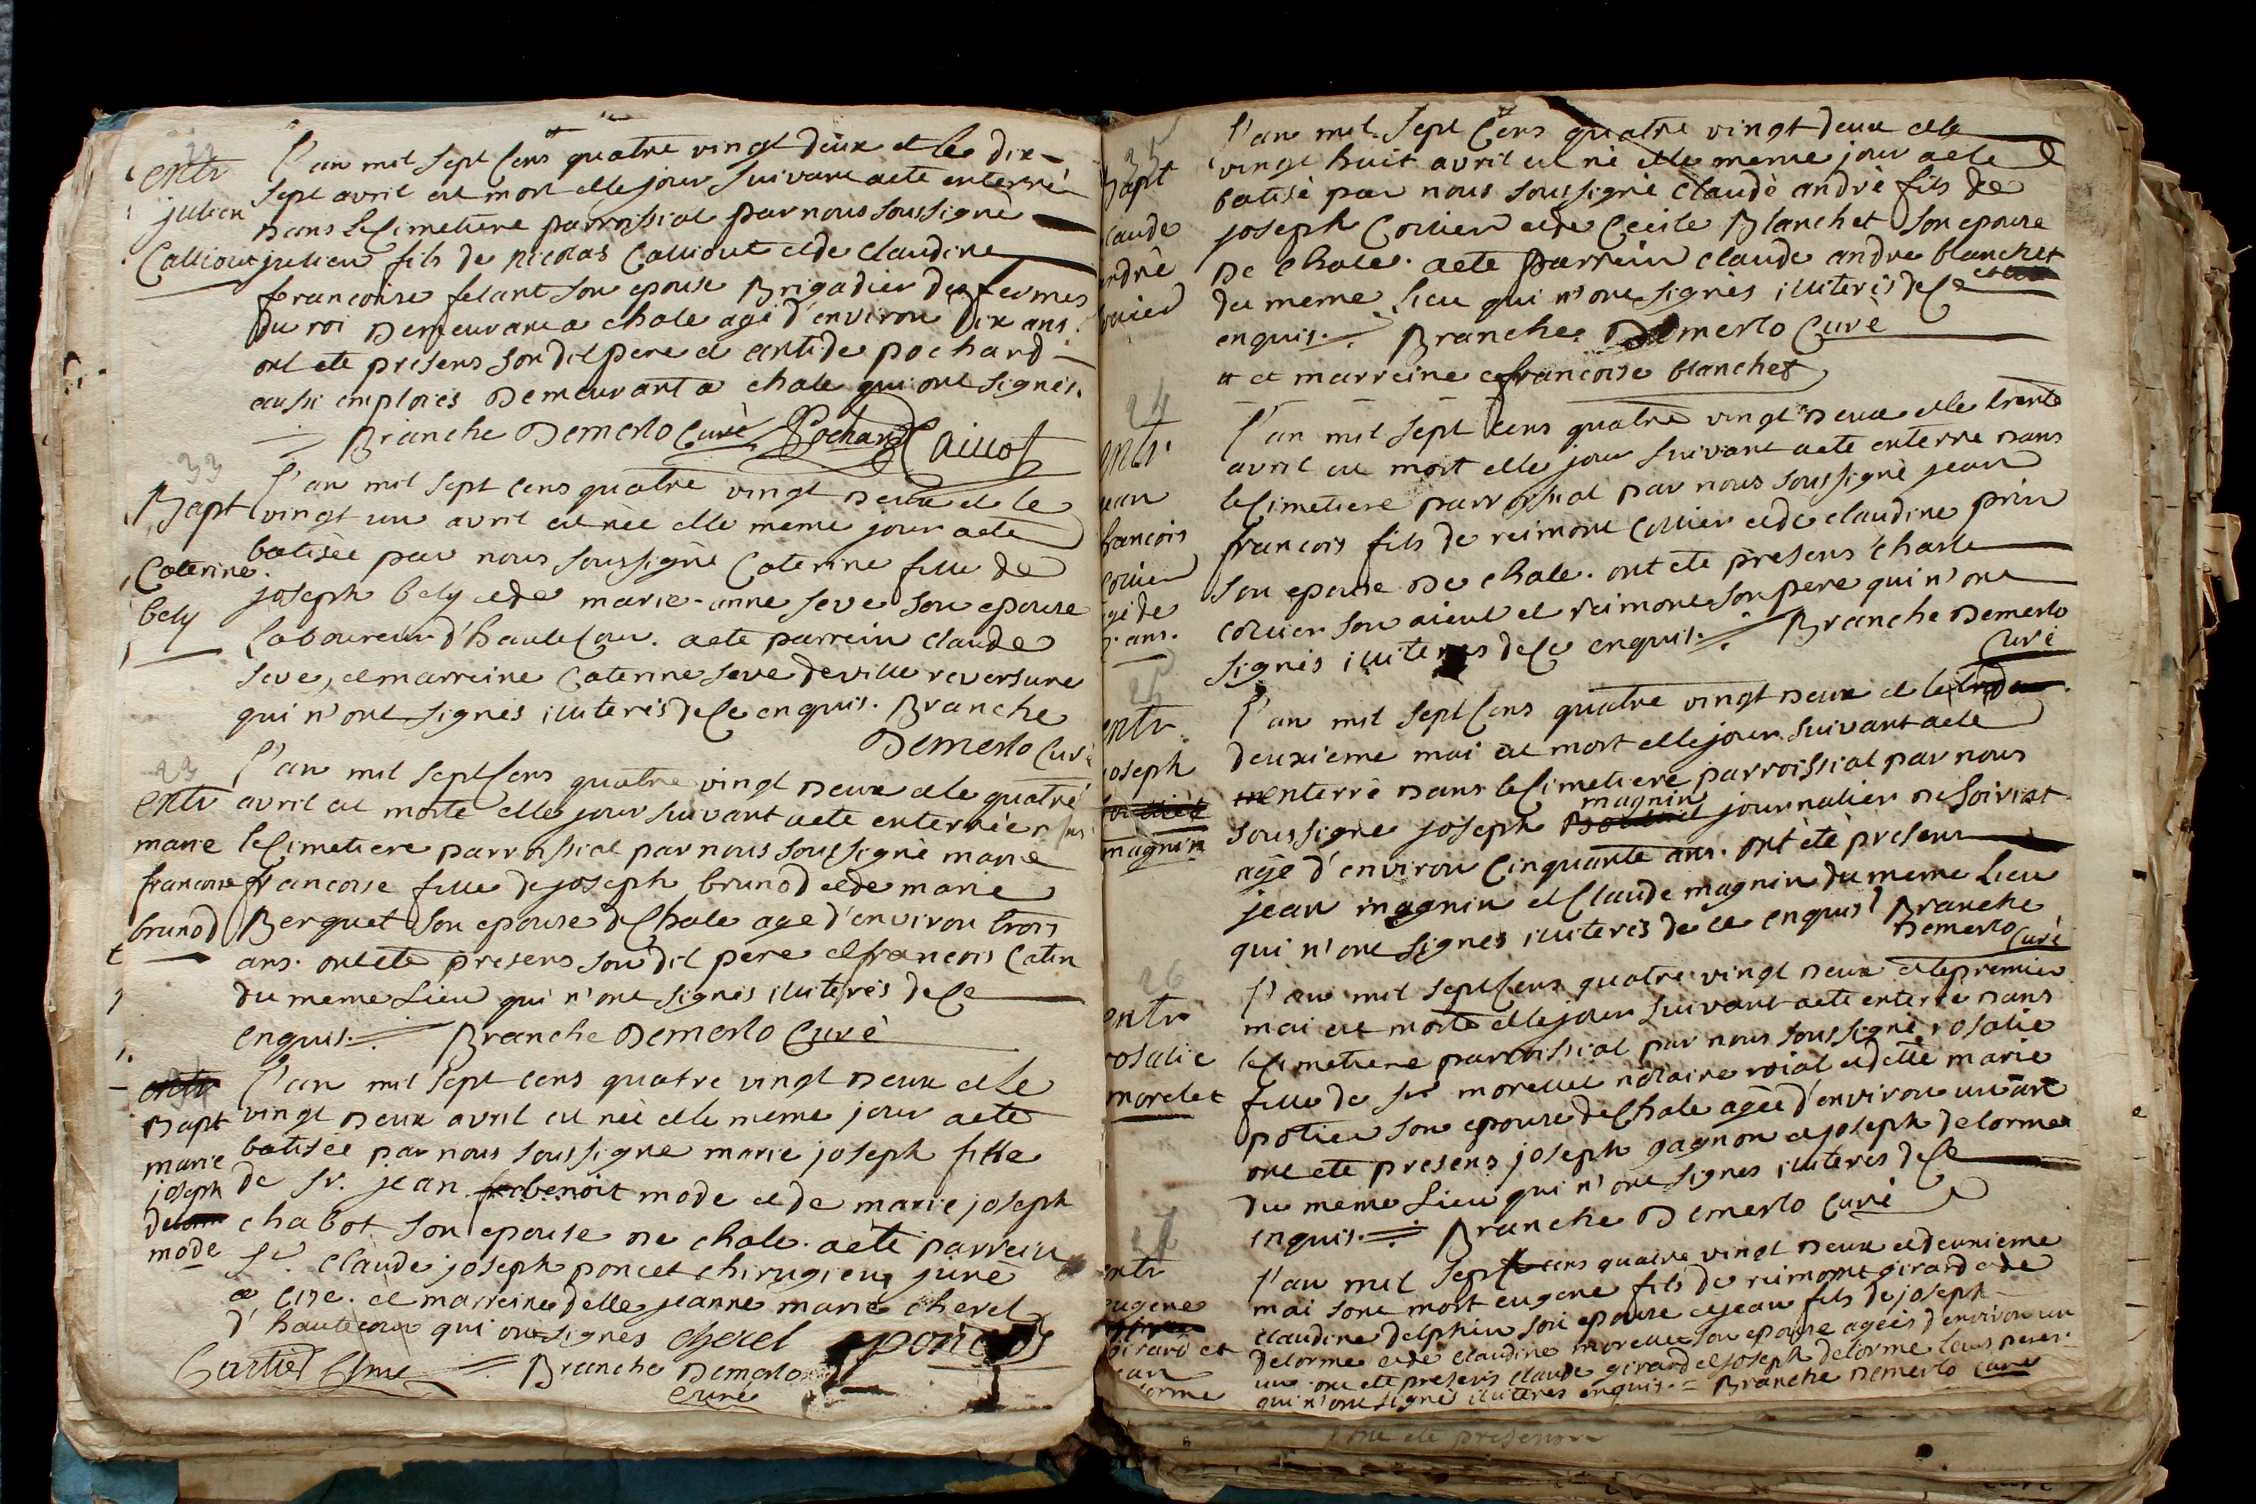 entr
julien
Calliout
L'an mil sept Cens quatre vingt deux et le dix-
sept avril est mort et le jour suivant a ete enterré
dans le Cimetiere parroissial par nous soussigné
julien fils de nicolas Calliout et de Claudine
francoise felant son epouse Brigadier des fermes
du roi demeurant a chale agé d'environ dix ans.
ont ete presens son dit pere et antide pochard
aussi emploiés demeurant a chale qui ont signés.
Branche Demerlo Curé Pochard Caillot
33
Bapt
Caterine
bely
L'an mil sept cens quatre vingt deux et le
vingt un avril est née et le meme jour a ete
batisée par nous soussigné Caterine fille de
joseph bely et de marie-anne seve son epouse
laboureur d'hautecour. a ete parrein claude
seve, et marreine Caterine seve de ville reversure
qui n'ont signés illiterés de ce enquis. Branche
Demerlo Curé
23
entr
marie
francoise
brunod
L'an mil sept Cens quatre vingt deux et le quatre
avril est morte et le jour suivant a ete enterrée dans
le Cimetiere parroissial par nous soussigné marie
francoise fille de joseph brunod et de marie
Berquet son epouse de Chale age d'environ trois
ans. ont ete presens son dit pere et francois Catin
du meme Lieu qui n'ont signés illiterés de Ce
enquis. Branche Demerlo Curé
entr
Bapt
marie
joseph
mode
L'an mil sept cens quatre vingt deux et Le
vingt deux avril est née et le meme jour a ete
batisée par nous soussigné marie joseph fille
de sr. jean benoit mode et de marie joseph
chabot son epouse de chale. a ete parrein
sr. claude joseph poncet chirugien juré
a cize. et marreine delle jeanne marie cherel
d'hautecour qui ont signés cherel poncet
Branche Demerlo
Curé
35
Bapt
Claude
andré
Collier
L'an mil sept Cens quatre vingt deux et le
vingt huit avril est né et le meme jour a ete
batisé par nous soussigné Claude andré fils de
joseph Collier et de Cecile Blanchet son epouse
de Chale. a ete parrein Claude andre blanchet
du meme Lieu qui n'ont signés illiterés de Ce
enquis. Branche Demerlo Curé
et marreine francoise blanchet
24
entr.
jean
francois
Collier
agé de
ans.
L'an mil sept Cens quatre vingt deux et le trente
avril est mort et le jour suivant a ete enterre dans
le Cimetiere parroissial par nous soussigné jean
francois fils de reimont Collier et de claudine prin
son epouse de Chale. ont ete presens charle
collier son aieul et reimont son pere qui n'ont
signés illiterés de Ce enquis. Branche Demerlo
Curé
25
entr.
joseph
magnin
L'an mil sept Cens quatre vingt deux et le
deuxieme mai est mort et le jour suivant a ete
enterré dans le Cimetiere parroissial par nous
magnin
soussigné joseph journalier de Soiriat
agé d'environ Cinquante ans. ont ete presens
jean magnin et Claude magnin du meme Lieu
qui n'ont signés illiterés de ce enquis Branche
Demerlo Curé
26
entr
rosalie
morelet
L'an mil sept Cens quatre vingt deux et le premier
mai est morte et le jour suivant a ete enterré dans
le Cimetiere parroissial par nous soussigné rosalie
fille de sr morellet notaire roial et delle marie
potier son epouse de Chale agée d'environ un an
ont ete presens joseph gagnon et joseph delorme
du meme Lieu qui n'ont signés illiterés de Ce
enquis. Branche Demerlo Curé
27
entr
eugene
girard et
jean
delorme
L'an mil sept cens quatre vingt deux et deuxieme
mai sont mort eugene fils de reimont girard et de
claudine delphin son epouse et jean fils de joseph
delorme et de claudine morellet son epouse agées d'environ un
an. ont ete presens claude girard et joseph delorme leurs peres.
qui n'ont signé illiterés enquis. = Branche Demerlo Curé
ont ete presens